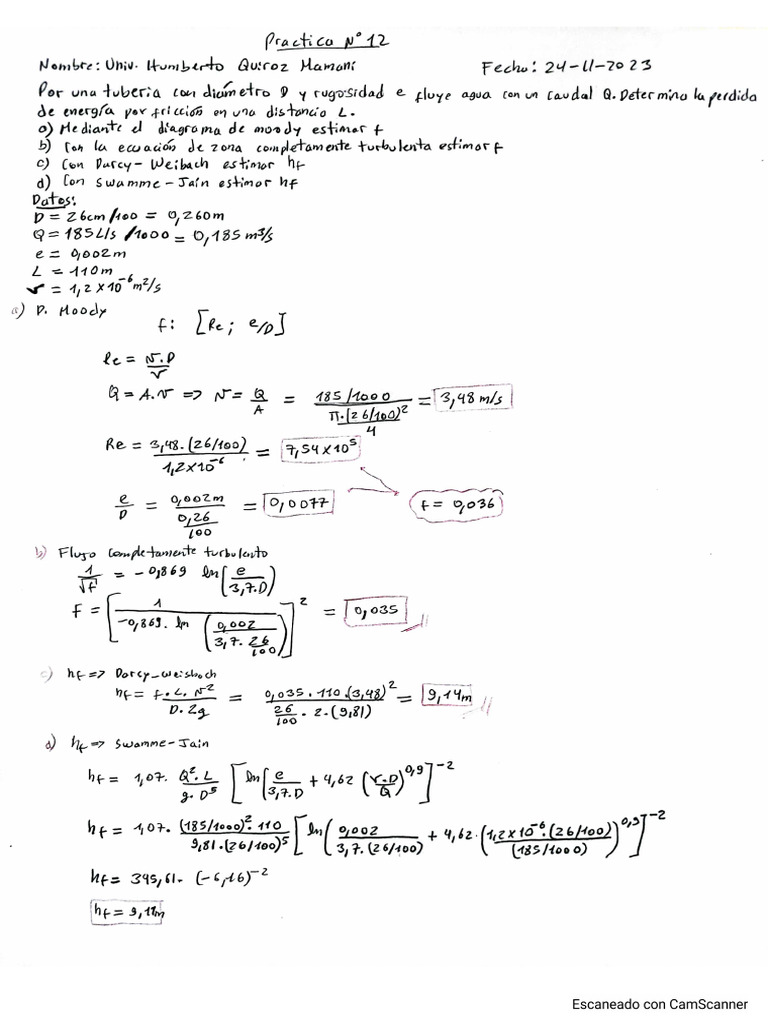 Practica N° 12
Nombre: Univ. Humberto Quiroz Mamani Fecha: 24-11-2023
Por una tuberia con diámetro D y rugosidad e fluye agua con un caudal Q. Determina la perdida
de energía por fricción en una distancia L.
a) Mediante el diagrama de moody estimar f
b) Con la ecuación de zona completamente turbulenta estimar f
c) Con Darcy-Weibach estimar hf
d) Con Swamme-Jain estimar hf
Datos:
D = 26cm/100 = 0,260m
Q = 185L/s /1000 = 0,185 m³/s
e = 0,002m
L = 110m
v = 1,2x10⁻⁶ m²/s
a) D. Moody
f: [Re; e/D]
Re = v.D/v
Q = A.v => v = Q/A = (185/1000)/(π.(26/100)²/4) = 3,48 m/s
Re = 3,48.(26/100)/1,2x10⁻⁶ = 7,54x10⁵
e/D = 0,002m/(0,26/100) = 0,0077 f = 0,036
b) Flujo completamente turbulento
1/√f = -0,869 ln(e/3,7.D)
f = [1/(-0,869. ln(0,002/(3,7. 26/100)))]² = 0,035
c) hf => Darcy-Weisbach
hf = f.L.v²/D.2g = 0,035.110.(3,48)²/(26/100 . 2.(9,81)) = 9,14m
d) hf => Swamme-Jain
hf = 1,07. Q².L/g.D⁵ [ln(e/3,7.D + 4,62 (v.D/Q)^0,9]⁻²
hf = 1,07. (185/1000)².110/9,81.(26/100)⁵ [ln(0,002/3,7.(26/100) + 4,62.(1,2x10⁻⁶.(26/100)/(185/1000))^0,9]⁻²
hf = 345,61. (-6,16)⁻²
hf = 9,11m
Escaneado con CamScanner